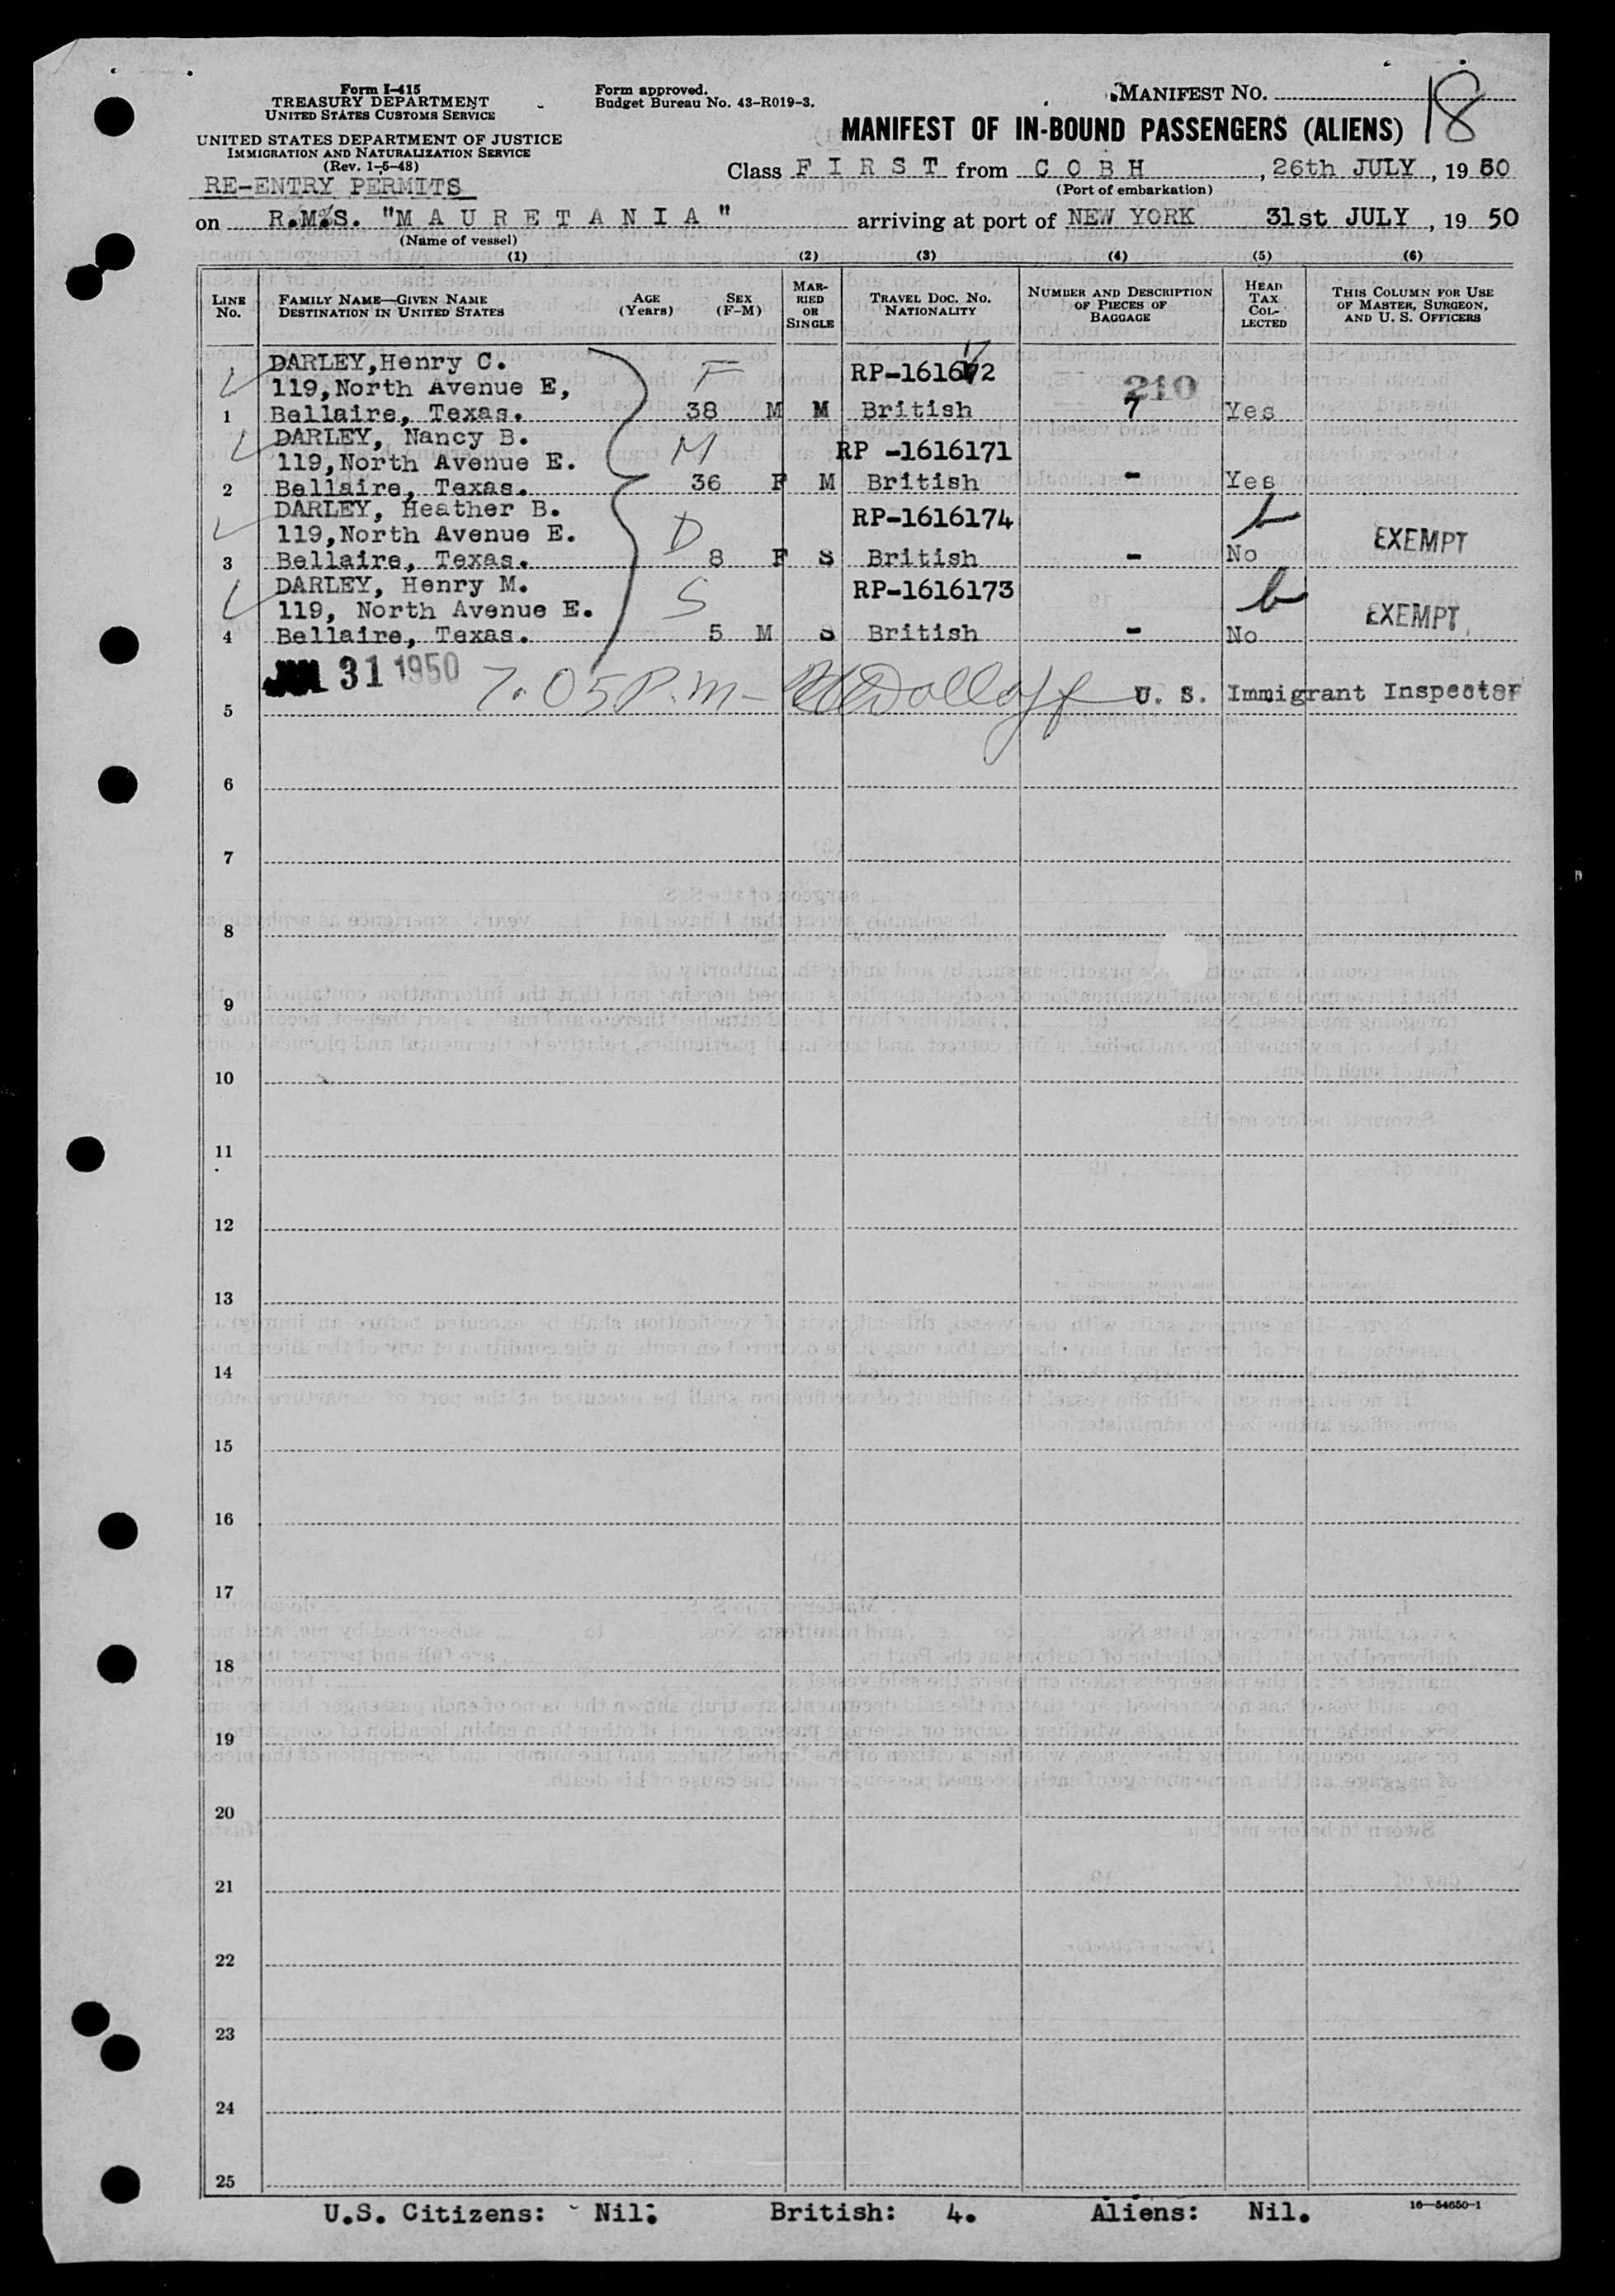 Form I-415
TREASURY DEPARTMENT
UNITED STATES CUSTOMS SERVICE
UNITED STATES DEPARTMENT OF JUSTICE
IMMIGRATION AND NATURALIZATION SERVICE
(Rev. 1-5-48)
RE-ENTRY PERMITS
Form approved.
Budget Bureau No. 43-R019-3.
MANIFEST NO. 18
MANIFEST OF IN-BOUND PASSENGERS (ALIENS)
Class F I R S T from C O B H, 26th JULY, 19 50
(Port of embarkation)
on R.M.S. "M A U R E T A N I A" arriving at port of NEW YORK 31st JULY, 19 50
(Name of vessel)
(1) (2) (3) (4) (5) (6)
LINE NO. FAMILY NAME—GIVEN NAME DESTINATION IN UNITED STATES AGE (Years) SEX (F-M) MARRIED OR SINGLE TRAVEL DOC. NO. NATIONALITY NUMBER AND DESCRIPTION OF PIECES OF BAGGAGE HEAD TAX COLLECTED THIS COLUMN FOR USE OF MASTER, SURGEON, AND U. S. OFFICERS
DARLEY, Henry C.
119, North Avenue E, F RP-1616172 210
1 Bellaire, Texas. 38 M M British 7 Yes
DARLEY, Nancy B.
119, North Avenue E. M RP -1616171
2 Bellaire, Texas. 36 F M British - Yes
DARLEY, Heather B.
119, North Avenue E. D RP-1616174 EXEMPT
3 Bellaire, Texas. 8 F S British - No
DARLEY, Henry M.
119, North Avenue E. S RP-1616173 EXEMPT
4 Bellaire, Texas. 5 M S British - No
31 1950 7.05 P.m- U. S. Immigrant Inspector
5
6
7
8
9
10
11
12
13
14
15
16
17
18
19
20
21
22
23
24
25
U.S. Citizens: - Nil. British: 4. Aliens: Nil.
16—54650-1